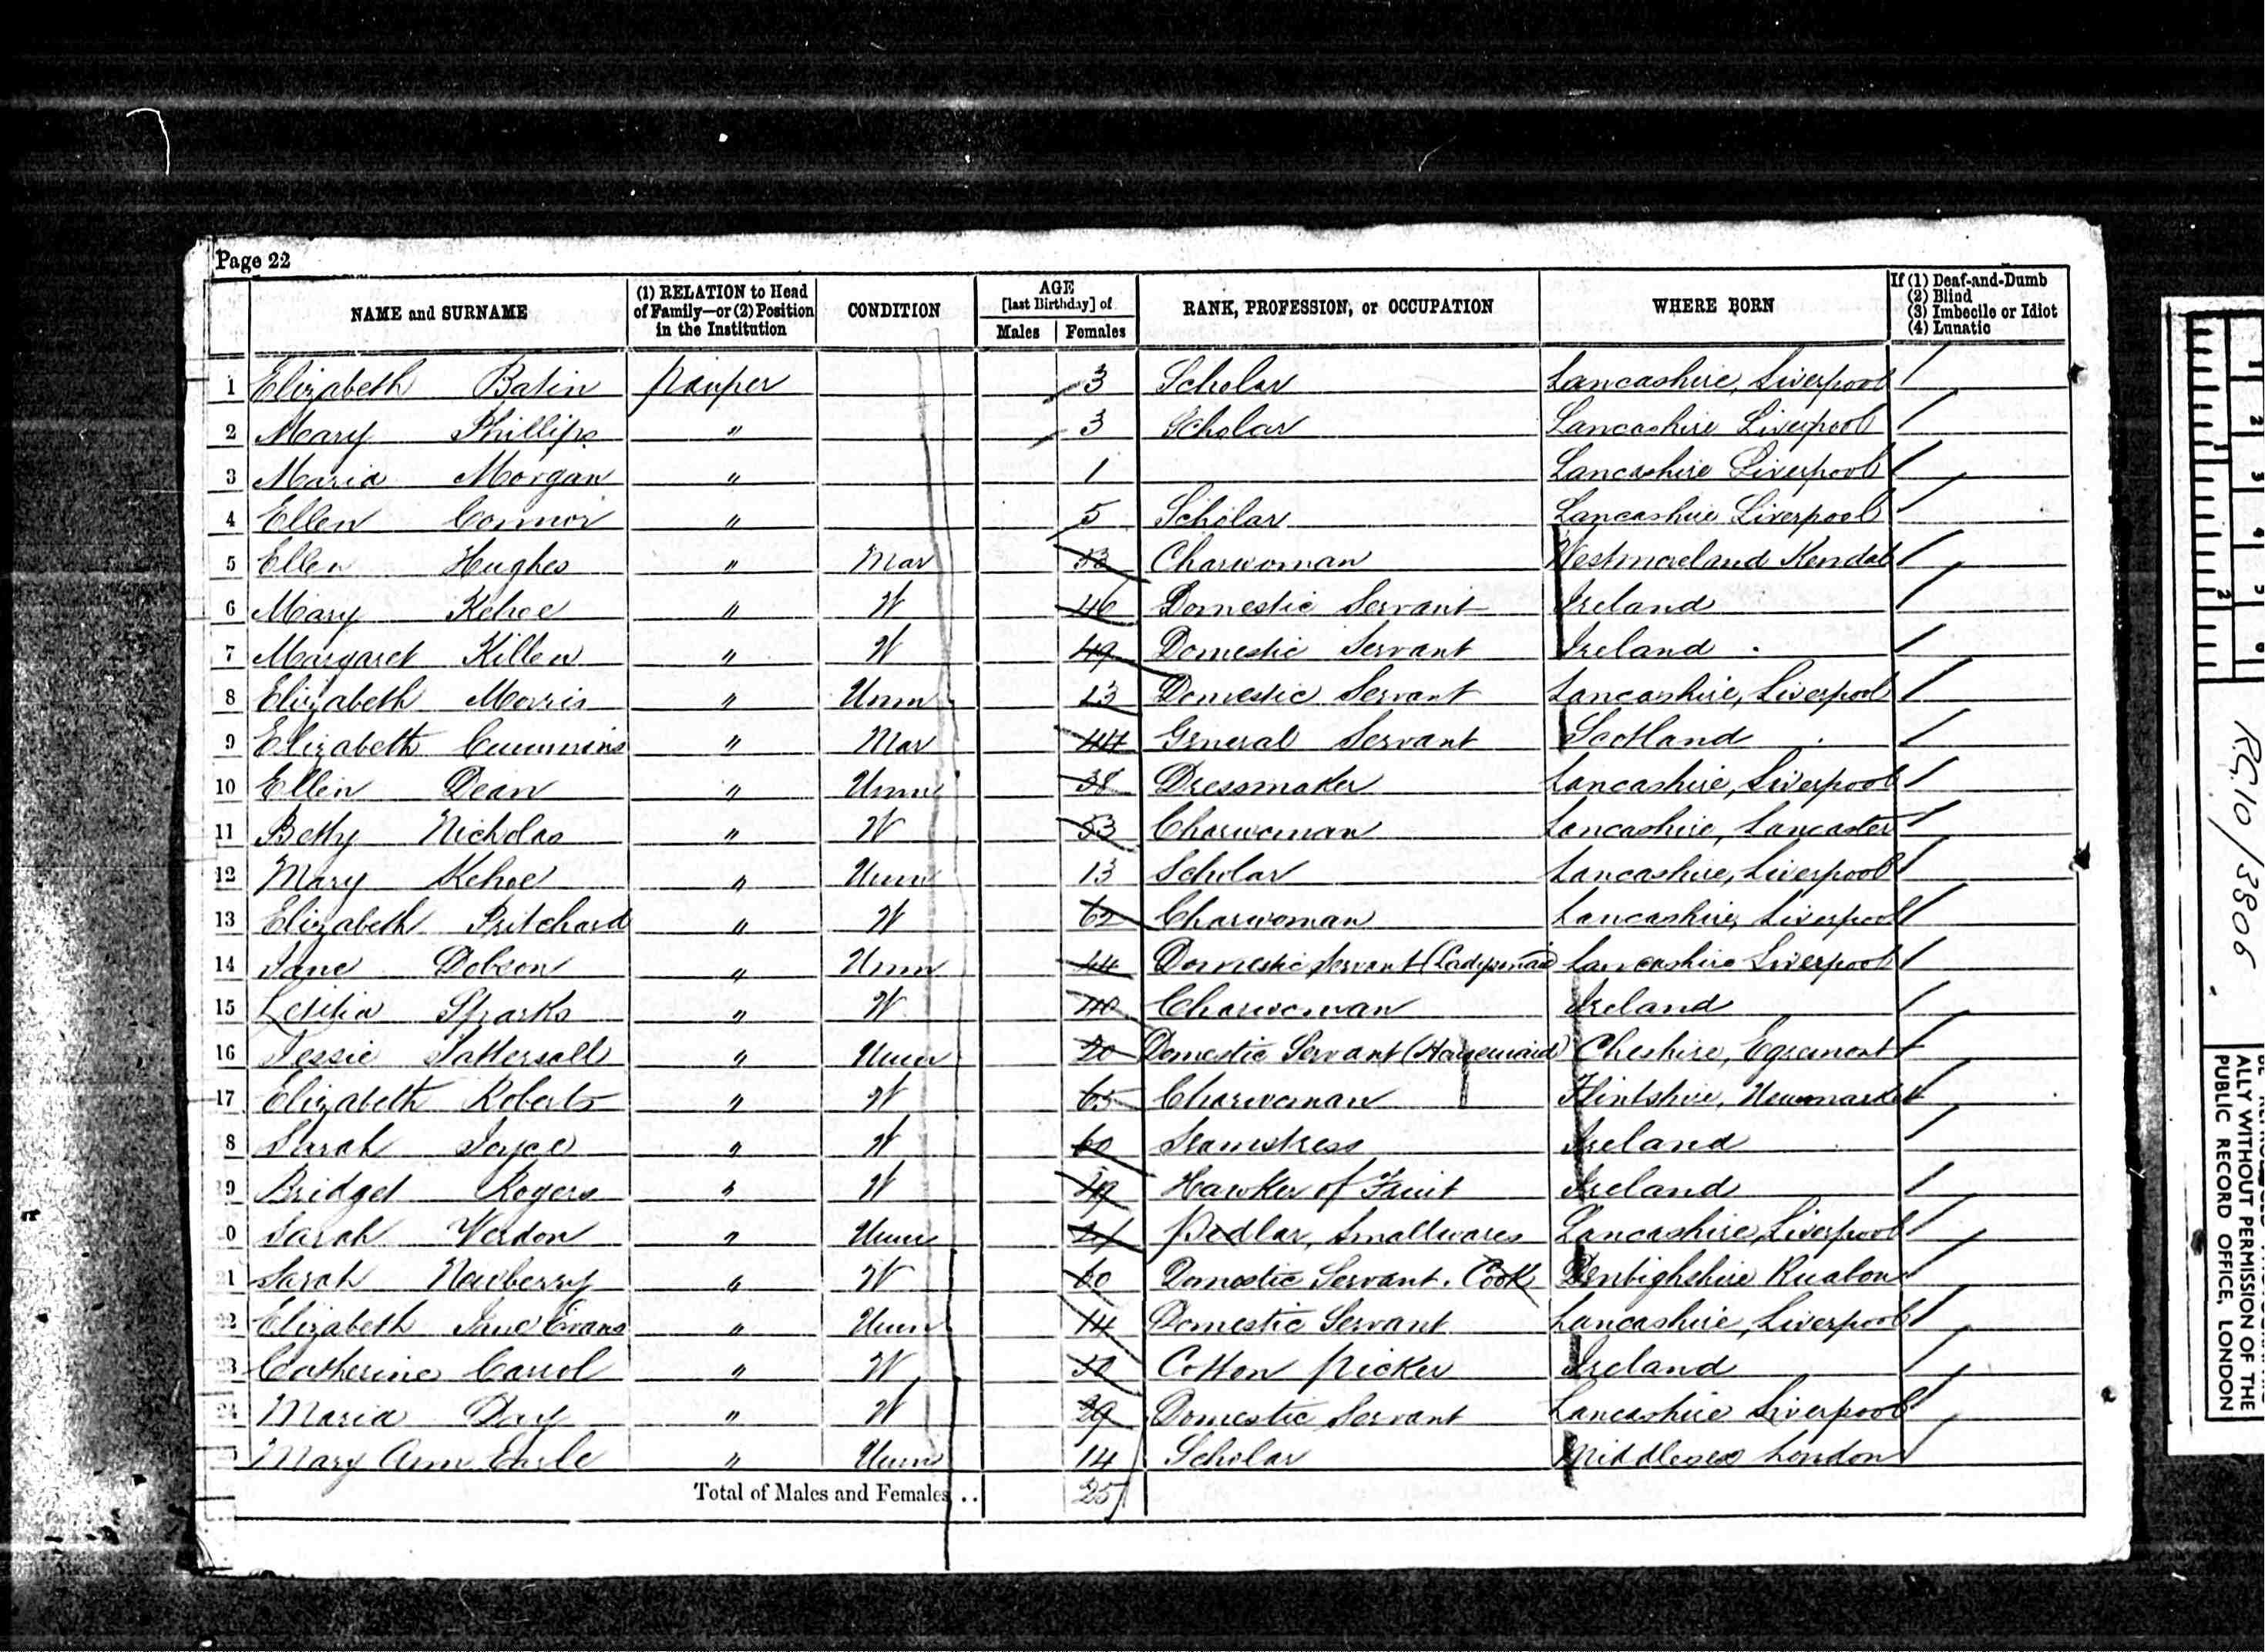 Page 22
NAME and SURNAME (1) RELATION to Head of Family—or (2) Position in the Institution CONDITION AGE [last Birthday] of Males Females RANK, PROFESSION, or OCCUPATION WHERE BORN If (1) Deaf-and-Dumb (2) Blind (3) Imbecile or Idiot (4) Lunatic
1 Elizabeth Batin pauper 3 Scholar Lancashire, Liverpool
2 Mary Phillips " 3 Scholar Lancashire Liverpool
3 Maria Morgan " 1 Lancashire Liverpool
4 Ellen Connor " 5 Scholar Lancashire Liverpool
5 Ellen Hughes " Mar Charwoman Westmoreland Kendal
6 Mary Kehoe " W 46 Domestic Servant Ireland
7 Margaret Killen " W 49 Domestic Servant Ireland
8 Elizabeth Morris " Unm 23 Domestic Servant Lancashire, Liverpool
9 Elizabeth Cummins " Mar 44 General Servant Scotland
10 Ellen Dean " Unm 38 Dressmaker Lancashire, Liverpool
11 Betty Nicholas " W 53 Charwoman Lancashire, Lancaster
12 Mary Kehoe " Unm 13 Scholar Lancashire, Liverpool
13 Elizabeth Pritchard " W 62 Charwoman Lancashire, Liverpool
14 Jane Dobson " Unm 44 Domestic Servant (Ladysmaid) Lancashire Liverpool
15 Letitia Sparks " W 40 Charwoman Ireland
16 Jessie Tattersall " Unm 20 Domestic Servant (Housemaid) Cheshire, Egremont
17 Elizabeth Roberts " W 65 Charwoman Flintshire, Newmarket
8 Sarah Joyce " W 60 Seamstress Ireland
19 Bridget Rogers " W Hawker of Fruit Ireland
0 Sarah Verdon " Unm 21 Pedlar, Smallwares Lancashire, Liverpool
21 Sarah Newberry " W 60 Domestic Servant. Cook Denbighshire Ruabon
22 Elizabeth Jane Evans " Unm 14 Domestic Servant Lancashire, Liverpool
23 Catherine Carrol " W 50 Cotton Picker Ireland
24 Maria Day " W 29 Domestic Servant Lancashire Liverpool
Mary Ann Earle " Unm 14 Scholar Middlesex London
Total of Males and Females .. 25
RG 10/3806
ALLY WITHOUT PERMISSION OF THE
PUBLIC RECORD OFFICE, LONDON